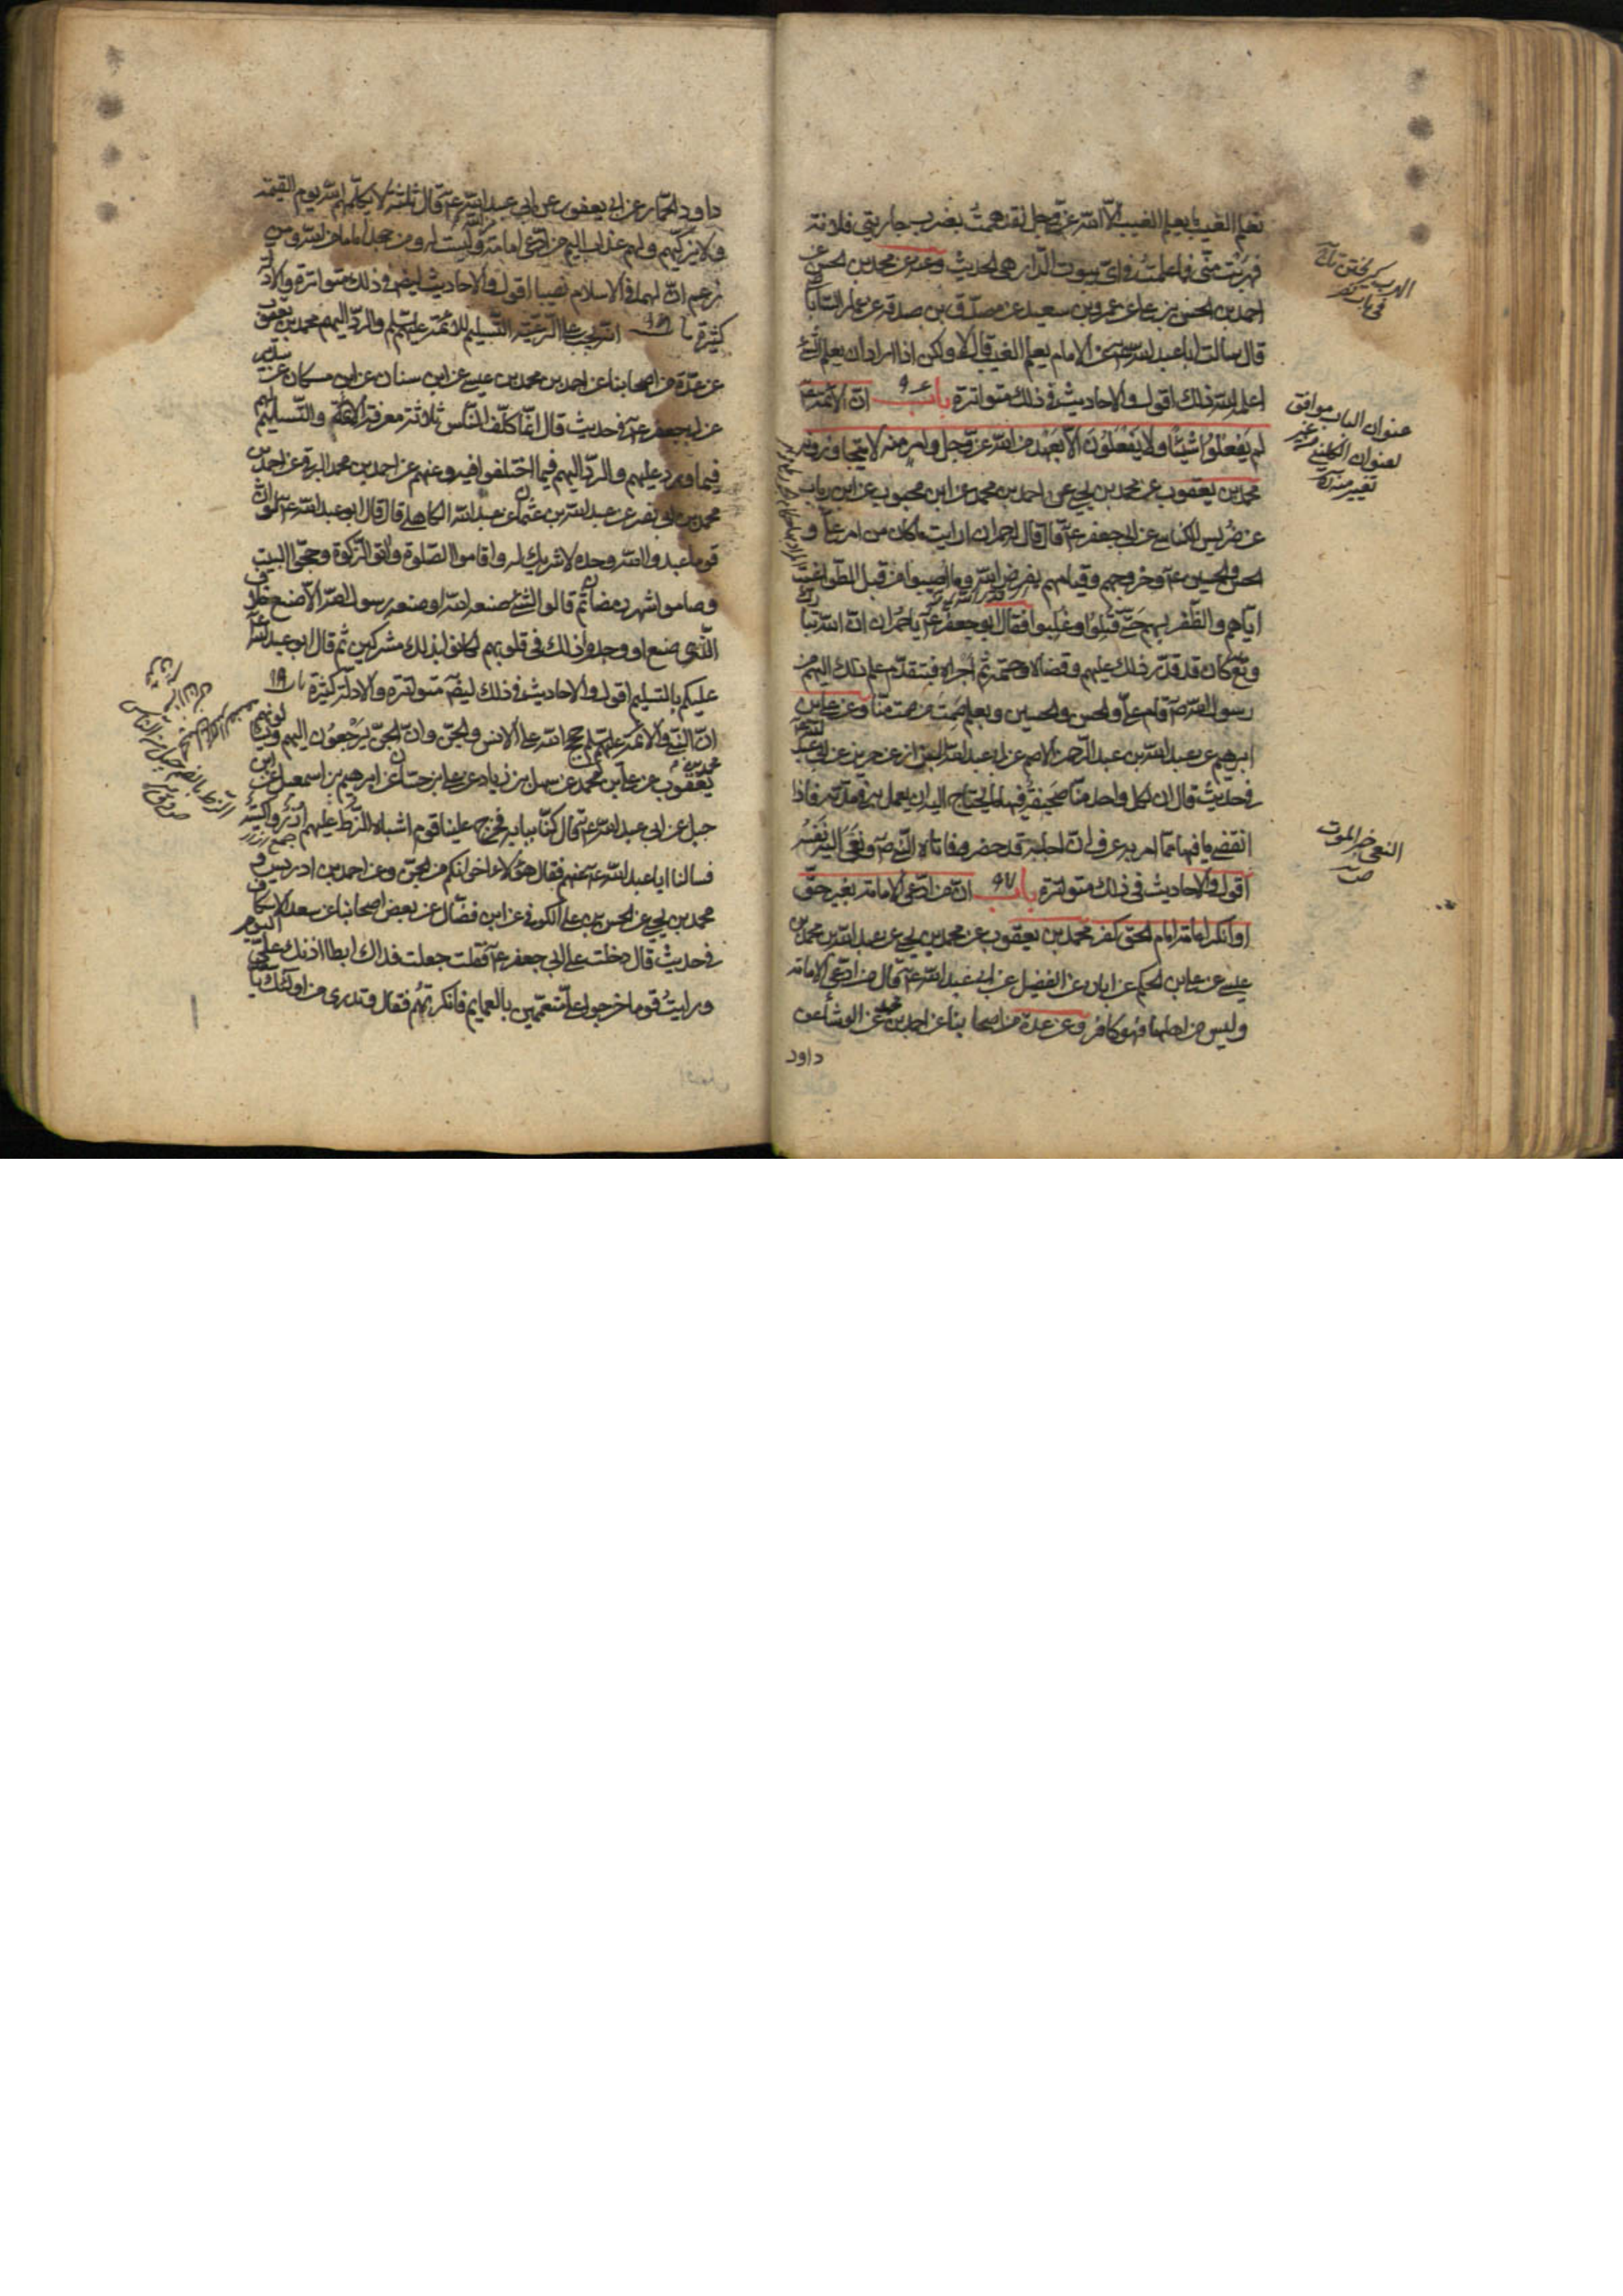 نعلم الغيب ما يعلم الغيب الا الله عز وجل لقد هممت بضرب جاريتي فلانة
فهربت مني فما علمت في اي بيوت الدار هي الحديث وعنه عن محمد بن الحسن عن
احمد بن الحسن بن علي عن عمرو بن سعيد عن مصدق بن صدقة عن عمار الساباطي
قال سالت ابا عبد الله ع عن الامام يعلم الغيب قال لا ولكن اذا اراد ان يعلم الشئ
اعلمه الله ذلك اقول والاحاديث في ذلك متواترة باب ٩٦ ان الائمة ع
لم يفعلوا شيئا ولا يفعلون الا بعهد من الله عز وجل وامر منه لا يتجاوزونه
محمد بن يعقوب عن محمد بن يحيى عن احمد بن محمد عن ابن محبوب عن ابن رياب
عن ضريس الكناسي عن ابي جعفر ع قال قال له حمران ارايت ما كان من امر علي و
الحسن والحسين ع وخروجهم وقيامهم بفرض الله وما اصيبوا من قبل الطواغيت
اياهم والظفر بهم حتى قتلوا وغلبوا فقال ابو جعفر ع يا حمران ان الله تبارك
وتع كان قد قدر ذلك عليهم وقضاه وحتمه ثم اجراه فبتقدم علم ذلك اليهم من
رسول الله ص قام علي والحسن والحسين وبعلم صمت من صمت منا وعن علي بن
ابرهيم عن عبد الله بن عبد الرحمن الاصم عن ابي عبد الله البزاز عن حريز عن ابي عبد الله ع
في حديث قال ان لكل واحد منا صحيفة فيها ما يحتاج اليه ان يعمل به في مدته فاذا
انقضى ما فيها مما امر به عرف ان اجله قد حضر فاتاه النبي ص ونعى اليه نفسه
اقول والاحاديث في ذلك متواترة باب ٩٧ ان من ادعى الامامة بغير حق
او انكر امامة امام الحق كفر محمد بن يعقوب عن محمد بن يحيى عن عبد الله بن محمد بن
عيسى عن علي بن الحكم عن ابان عن الفضيل عن ابي عبد الله ع قال من ادعى الامامة
وليس من اهلها فهو كافر وعن عدة من اصحابنا عن احمد بن محمد عن الوشاء عن
داود
الهرب كريختن تاج
عنوان الباب موافق
لعنوان الكليني من غير
تغيير منه
النعي خبر الموت
ص
داود الحمار عن ابي يعفور عن ابي عبد الله ع قال ثلثة لا يكلمهم الله يوم القيمة
ولا يزكيهم ولهم عذاب اليم من ادعى امامة من الله ليست له ومن جحد اماما من الله ومن
زعم ان لهما في الاسلام نصيبا اقول والاحاديث ايضا في ذلك متواترة والادلة
كثيرة باب ٩٨ انه يجب على الرعية التسليم للائمة عليهم السلم والرد اليهم محمد بن يعقوب
عن عدة من اصحابنا عن احمد بن محمد بن عيسى عن ابن سنان عن ابن مسكان عن سدير
عن ابي جعفر ع في حديث قال انما كلف الناس ثلاثة معرفة الائمة والتسليم لهم
فيما ورد عليهم والرد اليهم فيما اختلفوا فيه وعنهم عن احمد بن محمد البرقي عن احمد بن
محمد بن ابي نصر عن عبد الله بن عثمان عن عبد الله الكاهلي قال قال ابو عبد الله ع لو ان
قوما عبدوا الله وحده لا شريك له واقاموا الصلوة واتوا الزكوة وحجوا البيت
وصاموا شهر رمضان ثم قالوا لشئ صنعه الله او صنعه رسول الله الا صنع خلاف
الذي صنع او وجدوا ذلك في قلوبهم لكانوا بذلك مشركين ثم قال ابو عبد الله ع
عليكم بالتسليم اقول والاحاديث في ذلك ايضا متواترة والادلة كثيرة باب ٩٩
ان النبي والائمة عليهم السلم حجج الله على الانس والجن وان الجن يرجعون اليهم محمد بن
يعقوب عن علي بن محمد عن سهل بن زياد عن علي بن حسان عن ابرهيم بن اسمعيل عن ابن
جبل عن ابي عبد الله ع قال كنا ببابه فخرج علينا قوم اشباه الزط عليهم ازر واكسية
فسالنا ابا عبد الله ع عنهم فقال هؤلاء اخوانكم من الجن وعن احمد بن ادريس و
محمد بن يحيى عن الحسن بن علي الكوفي عن ابن فضال عن بعض اصحابنا عن سعد الاسكاف
في حديث قال دخلت على ابي جعفر ع فقلت جعلت فداك ابطا اذنك علي اليوم
ورايت قوما خرجوا علي متعممين بالعمايم فانكرتهم فقال وتدري من اولئك يا
جمع ازار
الزط بالضم جيل من الناس